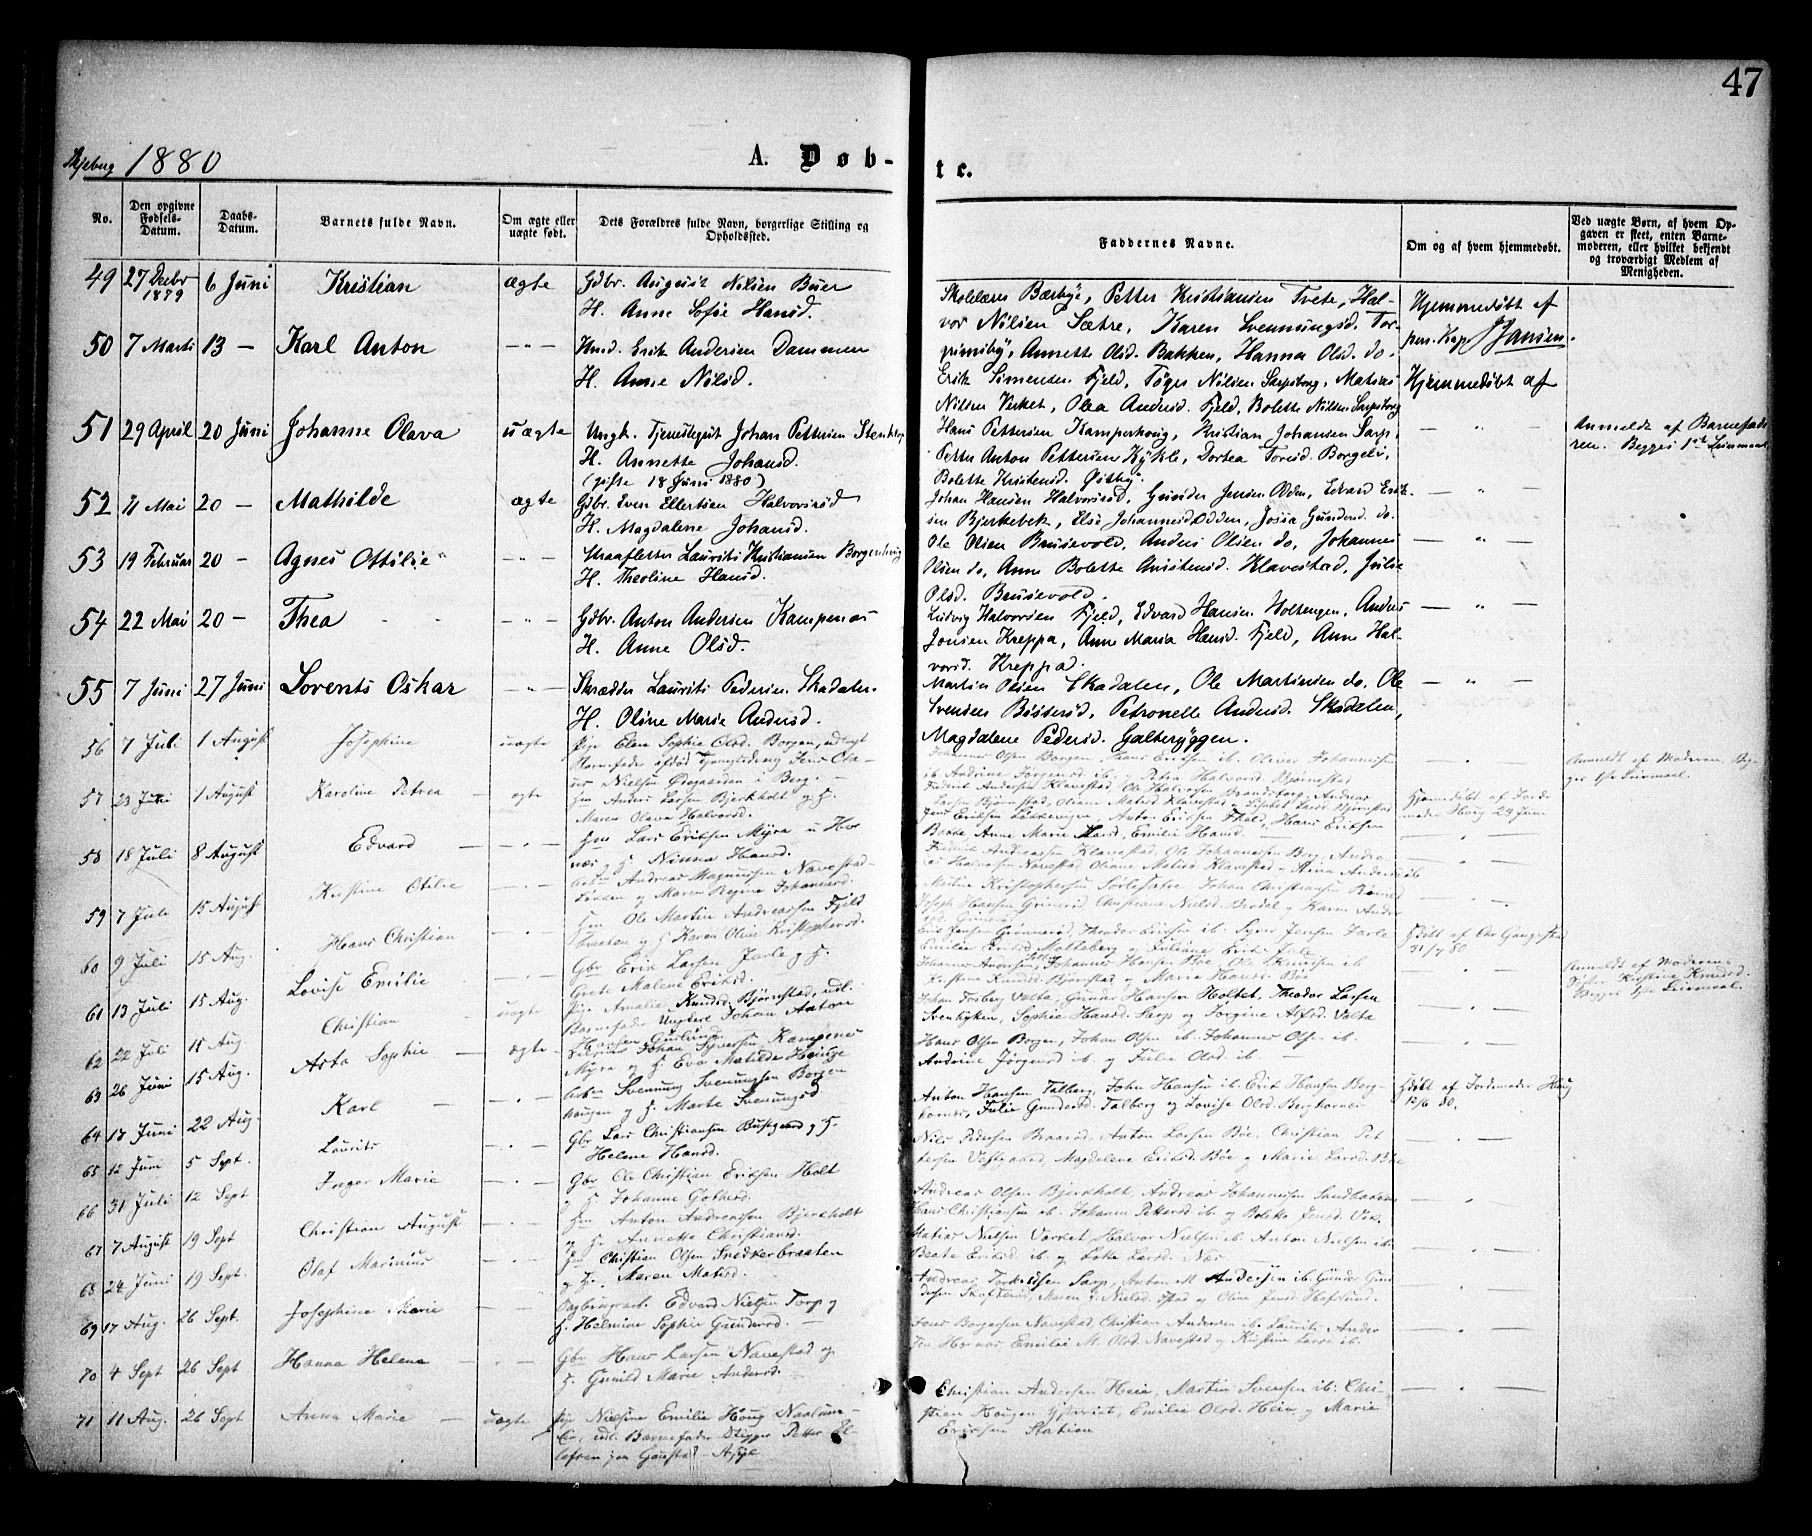 47
Skjeberg 1880
A. Døb-
te.
No.
Den opgivne Fødsels-Datum.
Daabs-Datum.
Barnets fulde Navn.
Om ægte eller uægte født.
Dets Forældres fulde Navn, borgerlige Stilling og Opholdssted.
Faddernes Navne.
Om og af hvem hjemmedøbt.
Ved uægte Børn, af hvem Op-
gaven er skeet, enten Barne-
moderen, eller hvilket bekjendt
og troværdigt Medlem af
Menigheden.
49 27 Decbr 1879 6 Juni Kristian ægte Gdbr. August Nilsen Buer
H. Anne Sofie Hansd.
Skolelærer Bærbye, Petter Kristiansen Tvete, Hal-
vor Nilsen Sætre, Karen Svenningsd. Tor-
pinsby, Annette Olsd. Bakken, Hanna Olsd. do.
Hjemmedøbt af
pers. Kap. Jansen.
50 7 Marts 13 — Karl Anton — " — Husd. Erik Andersen Dammen
H. Anne Nilsd.
Erik Simensen Fjeld, Tøger Nilsen Sarpsborg, Matias
Nilsen Verket, Olea Andersd. Fjeld, Bolette Nilsen Sarpsborg
Hjemmedøbt af
51 29 April 20 Juni Johanne Olava uægte Ungk. Tjenestegut Johan Pettersen
H. Annette Johansd.
(gifte 18 Juni 1880)
Hans Pettersen Kamperhoug, Kristian Johansen Sarp,
Petter Anton Pettersen Kykle, Dortea Toresd. Borgeli,
Bolette Kristensd. Østby.
— " —
Anmeldt af Barnefade-
ren. Begges 1st Leiermaal
52 11 Mai 20 — Mathilde ægte Gdbr. Even Ellertsen Halvorsrød
H. Magdalene Johansd.
Johan Hansen Halvorsrød, Gunder Jensen Odden, Edvard Erik-
sen Bjerkebek, Else Johannesd. Odden, Josia Gundersd. do.
— " —
53 19 Februar 20 — Agnes Ottilie — " — Straafletter Laurits Kristiansen Borgenhoug
H. Theoline Hansd.
Ole Olsen Brusevold, Anders Olsen do, Johannes
Olsen do, Anne Bolette Anstensd. Klavestad, Julie
Olsd. Brusevold.
— " —
54 22 Mai 20 — Thea — " — Gdbr. Anton Andersen Kampenes
H. Anne Olsd.
Ludvig Halvorsen Fjeld, Edvard Hansen Holtengen, Anders
Jensen Kreppa, Anne Maria Hansd. Fjeld, Anne Hal-
vorsd. Kreppa.
— " —
55 7 Juni 27 Juni Lorents Oskar — " — Skrædder Laurits Pedersen Skadalen.
H. Oline Marie Andersd.
Martin Olsen Skadalen, Ole Martinsen do, Ole
Svensen Bøsterød, Petronelle Andersd. Skadalen,
Magdalene Pedersd. Galteryggen.
— " —
56 7 Juli 1 August Josephine uægte Pige Elen Sophie Olsd. Borgen, udlagt
Barnefader afdød Jens Ola-
us Nielsen Ødegaarden i Berg.
Johannes Olsen Borgen, Hans Eriksen ib. Oliver Johannesen
ib. Andrine Jørgensd. ib. og Petra Halvorsd. Bjørnestad
Anmeldt af Moderen, Beg-
ges 1ste Leiermaal.
57 23 Juni 1 August Karoline Petrea ægte Gm Anders Larsen Bjerkholt og H.
Maren Olava Halvorsd.
Fredrik Andersen Klavestad, Ole Halvorsen Brandsborg, Andreas
Larsen Bjørnstad, Oliane Matisd. Klavestad og Lisebet Larsd. Bjørnstad
Hjemmedøbt af Jorde-
moder Houg 29 Juni
58 18 Juli 8 August Edvard — Gm Lars Eriksen Myra u. Hor
næs og H. Ninna Hansd.
Jens Eriksen Løkkevigen, Anton Eriksen, Hans Eriksen
Bakke, Anne Marie Hansd, Emilie Hansd.
59 7 Juli 15 August Kristine Otilie — Arb. Andreas Magnussen Navestad-
og Maren Regine Johannesd.
Fredrik Andersen Klavestad, Ole Johannesen Borg, Andre
as Halvorsen Navestad, Oliane Matisd. Klavestad og Stina Andersd. ib
60 9 Juli 15 Aug. Hans Christian — Gm Ole Martin Andreassen Fjeld
braaten og H. Karen Oline Kristophersd.
Martin Kristophersen Sørlesætre, Johan Christiansen
Joseph Hansen Grinerød, Christiane Nielsd. Brodal og Karen Anders
61 13 Juli 15 Aug. Lovise Emilie — Gbr Erik Larsen Jarle og H.
Grete Malene Eriksd.
Erik Jensen Grinnerød, Theodor Eriksen ib. Syver Jensen Jarle
Emilie Eriksd. Molteberg og Juliane Eriksd. Jarle
Hdøbt af Ole Gangestad
31/7 80
62 22 Juli 15 Aug Christian uægte Pige Amalie Knudsd. Bjørnstad, udl.
Barnefader Ungkarl Johan Anton
Hansen Guslund
Johannes Andersen, Johannes Hansen Bøe, Ole Knudsen ib
Kirstine Knudsd. Bjørnstad og Maria Hansd. Bøe
Anmeldt af Moderens
Søster Kirstine Knudsd.
Begges 1ste Leiermaal.
63 26 Juni 15 Aug. Asta Sophie — ægte Johan Syversen Kampenes
Myra og H. Eva Matilde
Johan Fosberg Valta, Gunnar Hansen Holtet, Theodor Larsen
Svenkyken, Sophie Hansd. Sarp og Jørgine Alfsd. Valte
64 17 Juni 22 Aug. Karl — Arb. Svenning Svenningsen Borgen
hougen og H. Marte Svenningsd
Hans Olsen Borgen, Johan Olsen ib. Johannes Olsen ib.
Andrine Jørgensd ib. og Julie Olsd. ib.
65 12 Juni 5 Sept. Laurits — Gbr Lars Christiansen Bustgaard og H.
Helene Hansd.
Anton Hansen Talberg, John Hansen ib. Erik Hansen Berg-
hornes, Julie Gundersd. Talberg og Lovise Olsd. Berghornes
Hdøbt af Jordemoder Houg
12/6 80.
66 31 Juli 12 Sept Inger Marie — Gbr Ole Christian Eriksen Holt
H. Johanne
Nils Pedersen Braarød, Anton Larsen Bøe, Christian Pet
tersen Vestgaard, Magdalene Eriksd. Bøe og Marie Larsd. Bøe
67 7 August 19 Sept Christian August — Gm Anton Andreassen Bjerkholt
og H. Annette Christiansd.
Andreas Olsen Bjerkholt, Andreas Johannesen Sandbakken
Hans Christiansen ib. Johanne Pettersd. ib. og Bolette Jensd.
68 24 Juni 19 Sept. Olaf Marinius — Gm Christian Olsen Snekkerbraaten
og H. Maren Matisd.
Matias Nielsen Værket, Halvor Nielsen ib. Anton Nielsen ib.
Beate Eriksd ib. og Lotte Larsd.
69 17 Aug. 26 Sept. Josephine Marie — Dagbrugsarb. Edvard Nielsen Torp og
H. Helmine Sophie Gundersd.
Andreas Torkildsen Sarp, Anton M. Andersen ib. Gunder Gun
dersen Skafterød, Maren Nielsd. og Oline Jensd. Hafslund.
70 4 Sept 26 Sept Hanna Helene — Gbr Hans Larsen Navestad og
H. Gunild Marie Andersd.
Jens Borgersen Navestad, Christian Andersen ib. Laurits Anders
sen Hornæs, Emilie M. Olsd. Navestad og Kirstine Larsd. ib.
71 11 Aug. 26 Sept Anna Marie — uægte Pige Nielsine Emilie Houg
udl. Barnefader Petter El-
lefsen
Christian Andersen Heia, Martin Svensen ib. Chri-
stian Hougen, Emilie Olsd. Heia, og Marie
Eriksen Station